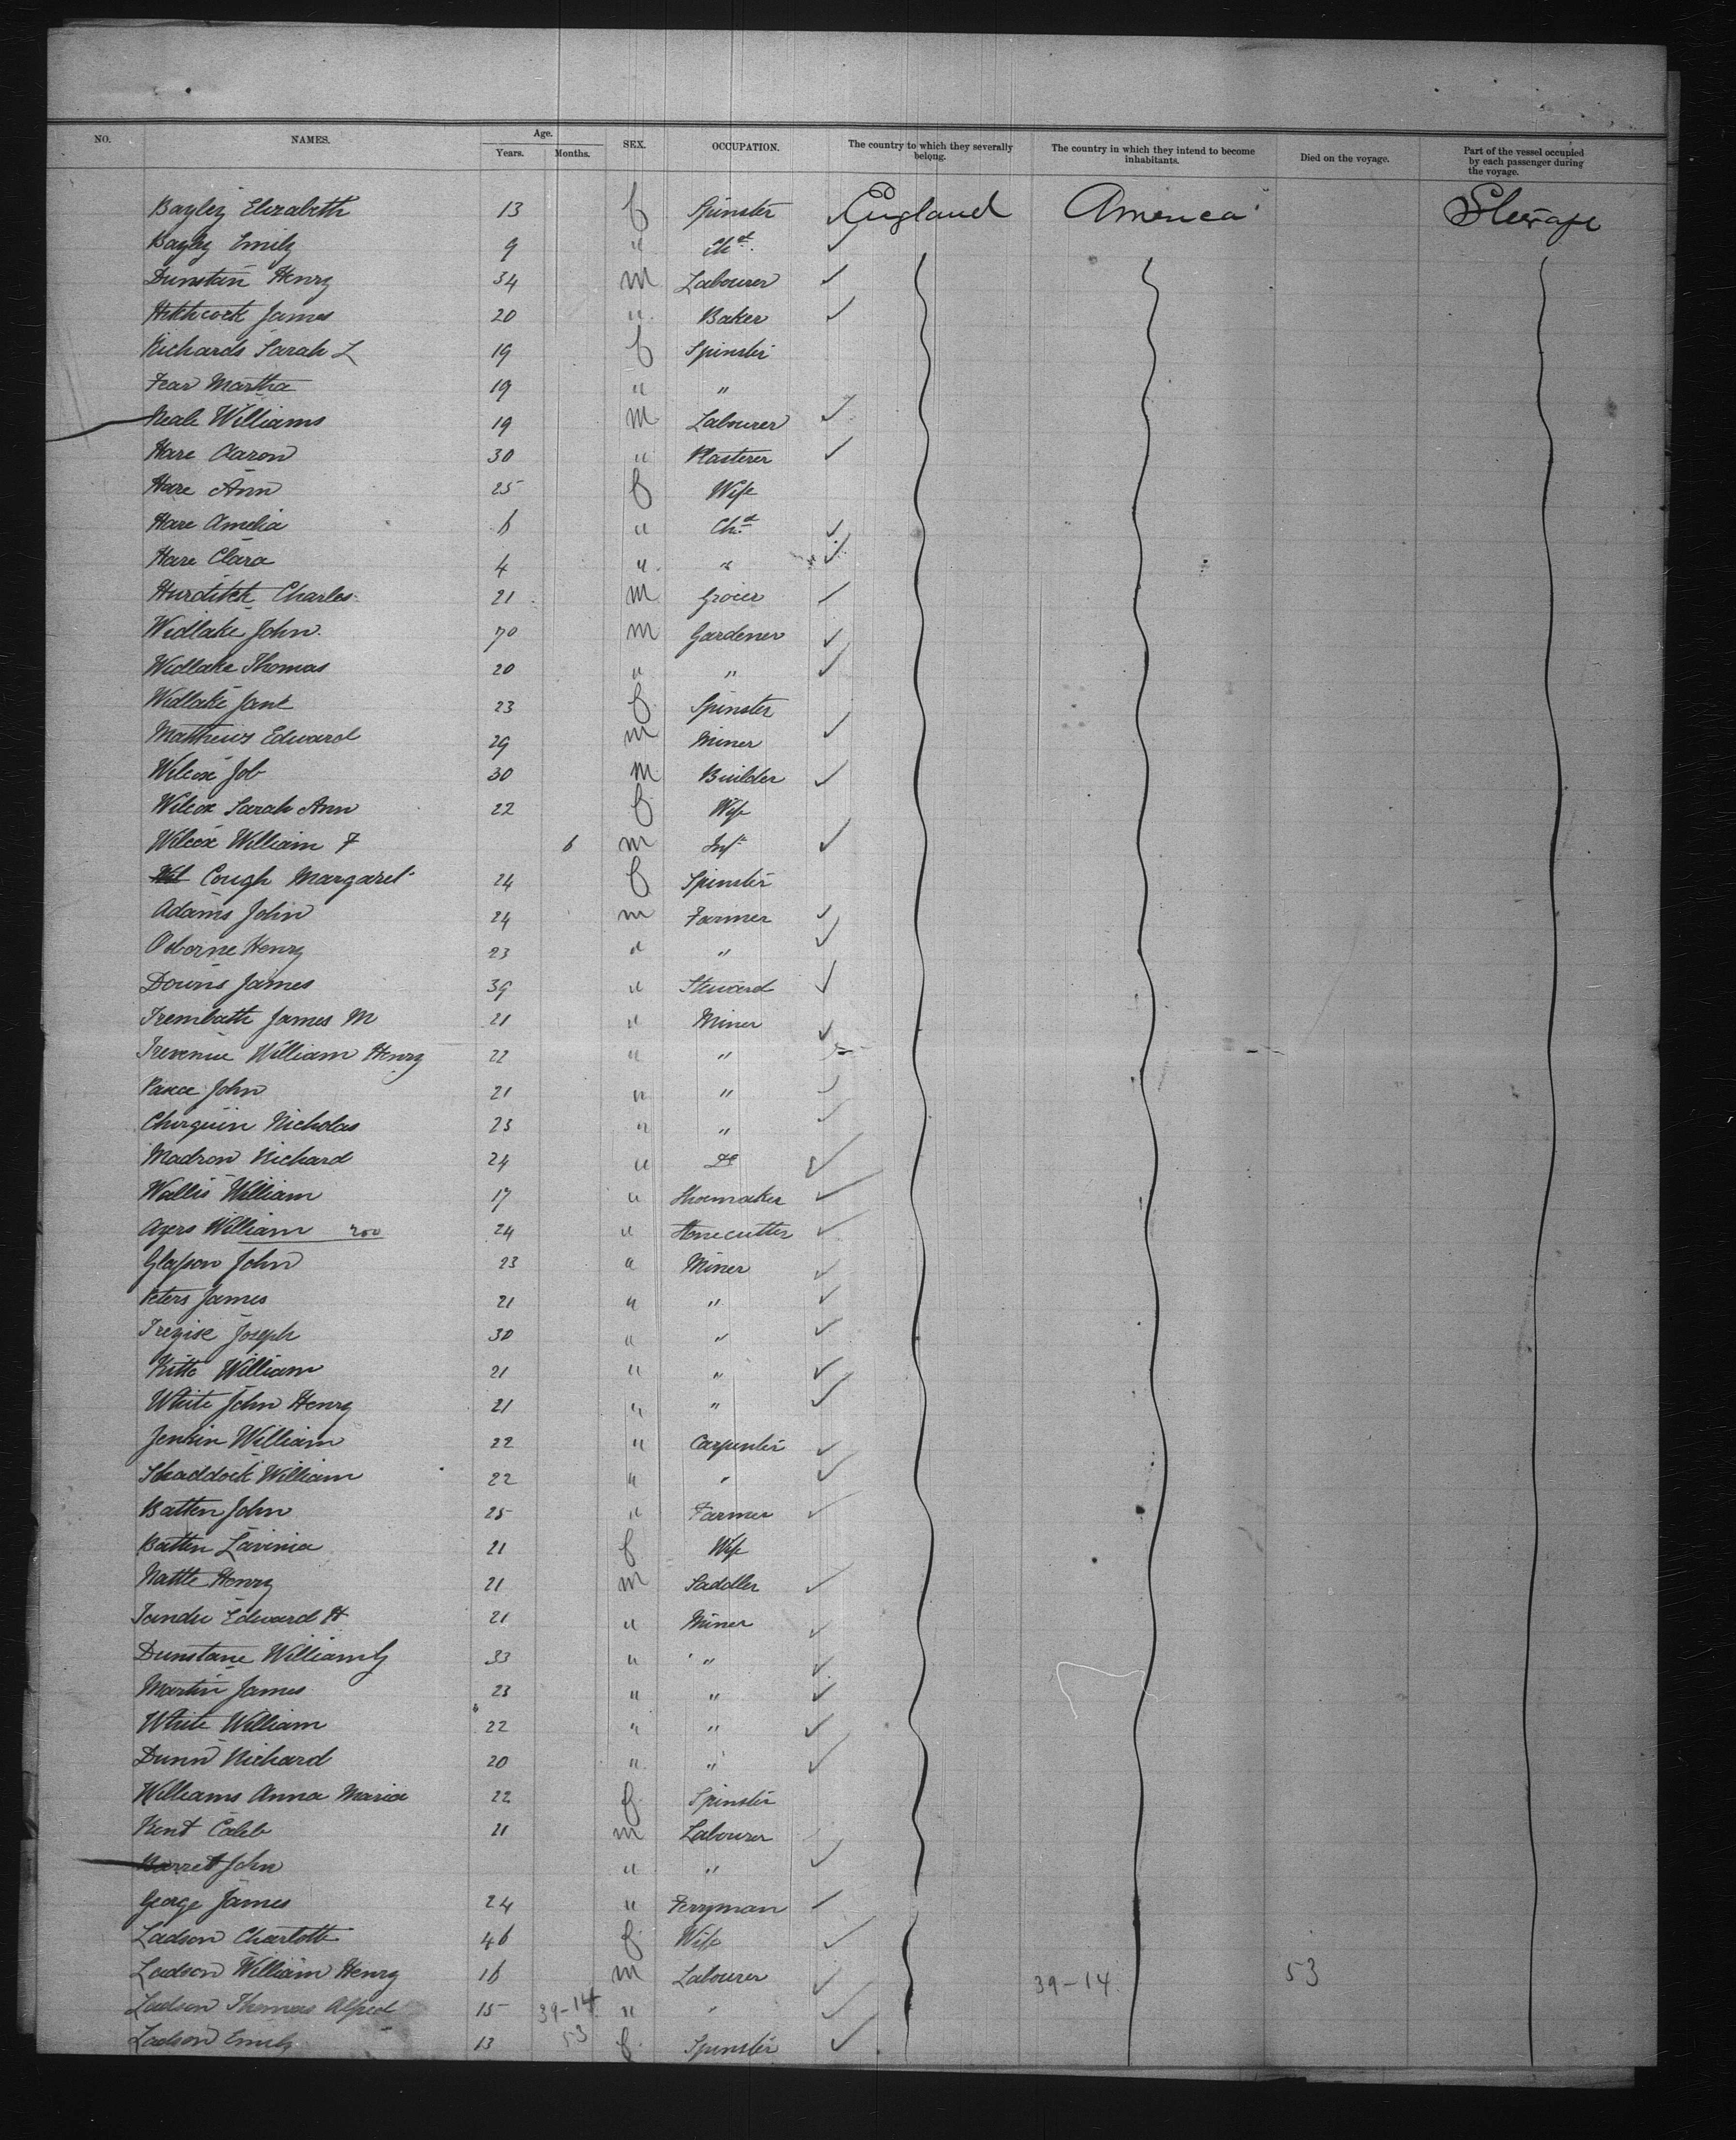 NO. NAMES. Age. Years. Months. SEX. OCCUPATION. The country to which they severally belong. The country in which they intend to become inhabitants. Died on the voyage. Part of the vessel occupied by each passenger during the voyage.
Bayley Elizabeth 13 f Spinster England America Steerage
Bayley Emily 9 " Chd.
Dunstan Henry 34 m Labourer
Hitchcock James 20 " Baker
Richards Sarah L 19 f Spinster
Fear Martha 19 " "
Neale Williams 19 m Labourer
Hare Aaron 30 " Plasterer
Hare Ann 25 f Wife
Hare Amelia 6 " Chd
Hare Clara 4 " "
Hurditch Charles 21 m Grocer
Widlake John 70 m Gardener
Widlake Thomas 20 " "
Widlake Jane 23 f Spinster
Matthews Edward 29 m Miner
Wilcox Job 30 m Builder
Wilcox Sarah Ann 22 f Wife
Wilcox William F 6 m Inft
Cough Margaret 24 f Spinster
Adams John 24 m Farmer
Osborne Henry 23 " "
Downs James 39 " Steward
Trembath James M 21 " Miner
William Henry 22 " "
Pasce John 21 " "
Chirguin Nicholas 23 " "
Madron Richard 24 " Do
Wallis William 17 " Shoemaker
Ayers William 200 24 " Stonecutter
Glasson John 23 " Miner
Peters James 21 " "
Tregise Joseph 30 " "
Kitto William 21 " "
White John Henry 21 " "
Jenkin William 22 " Carpenter
Shaddock William 22 " "
Batten John 25 " Farmer
Batten Lavinia 21 f Wife
Nattle Henry 21 m Saddler
Edward H 21 " Miner
Dunstane William G 33 " "
Martin James 23 " "
White William 22 " "
Dunn Richard 20 " "
Williams Anna Maria 22 f Spinster
Kent Caleb 21 m Labourer
Barrett John " "
George James 24 " Ferryman
Ladson Charlotte 46 f Wife
Ladson William Henry 16 m Labourer 39-14 53
Ladson Thomas Alfred 15 39-14 " "
Ladson Emily 13 53 f Spinster